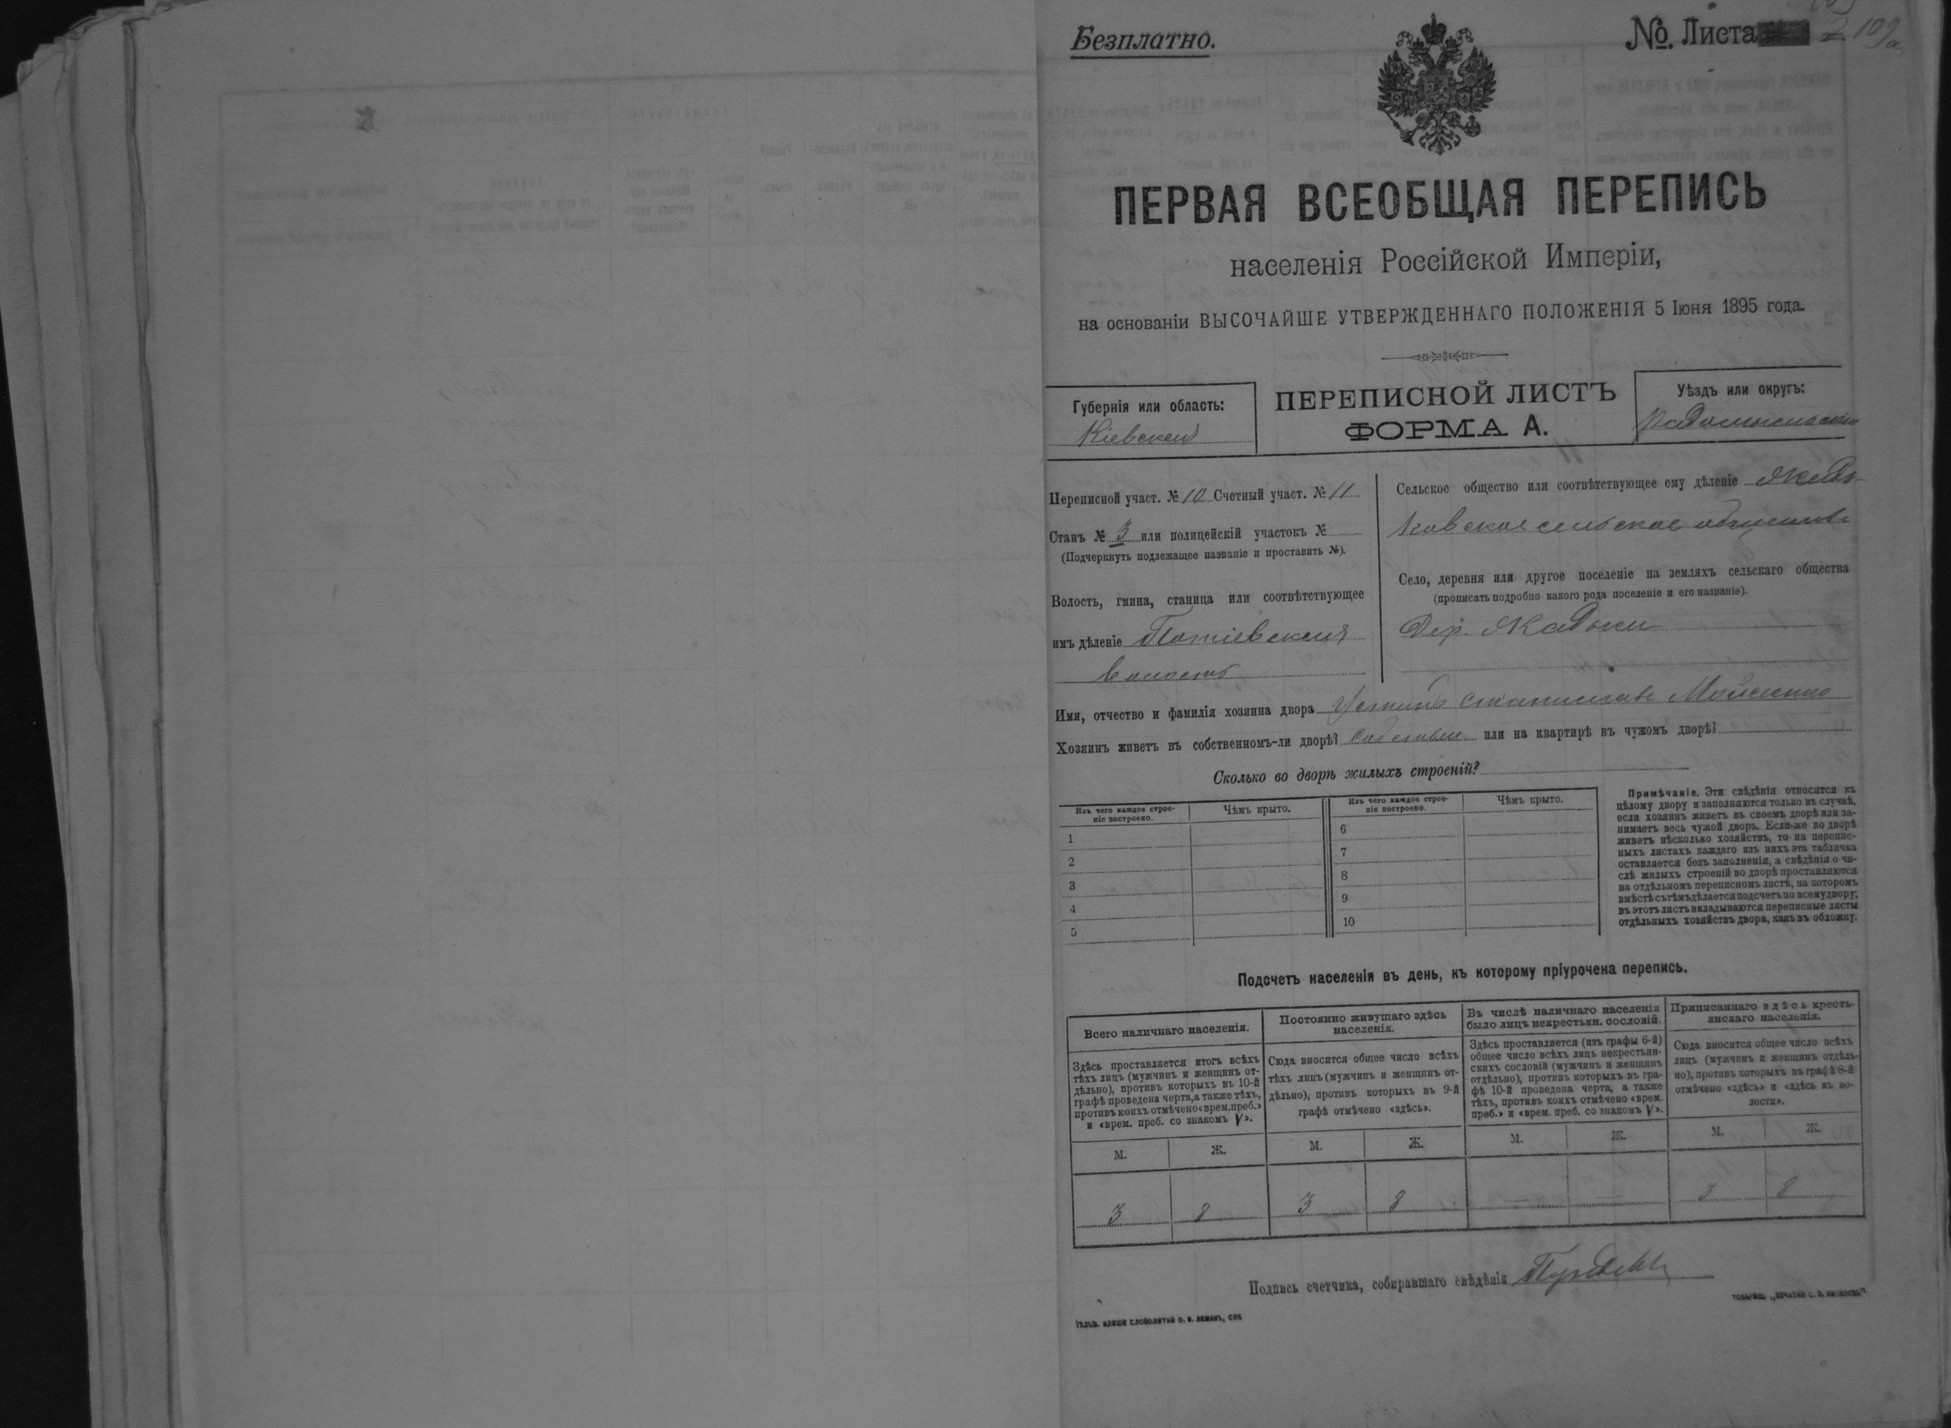 Безплатно.
№. Листа 2 109а
ПЕРВАЯ ВСЕОБЩАЯ ПЕРЕПИСЬ
населенія Россійской Имперіи,
на основаніи ВЫСОЧАЙШЕ УТВЕРЖДЕННАГО ПОЛОЖЕНІЯ 5 Іюня 1895 года.
Губернія или область:
Кіевская
ПЕРЕПИСНОЙ ЛИСТЪ
ФОРМА А.
Уѣздъ или округъ:
Радомысльскій
Переписной участ. № 10 Счетный участ. № 11
Станъ № 3 или полицейскій участокъ №
(Подчеркнуть подлежащее названіе и проставить №).
Волость, гмина, станица или соотвѣтствующее
имъ дѣленіе Потіевская
волость
Сельское общество или соотвѣтствующее ему дѣленіе
сельское общество
Село, деревня или другое поселеніе на земляхъ сельскаго общества
(прописать подробно какого рода поселеніе и его названіе).
Дер.
Имя, отчество и фамилія хозяина двора Устинъ
Хозяинъ живетъ въ собственномъ-ли дворѣ? или на квартирѣ въ чужомъ дворѣ?
Сколько во дворѣ жилыхъ строеній?
Изъ чего каждое строе-
ніе построено.
Чѣмъ крыто.
1
2
3
4
5
Изъ чего каждое строе-
ніе построено.
Чѣмъ крыто.
6
7
8
9
10
Примѣчаніе. Эти свѣдѣнія относятся къ
цѣлому двору и заполняются только въ случаѣ,
если хозяинъ живетъ въ своемъ дворѣ или за-
нимаетъ весь чужой дворъ. Если-же во дворѣ
живетъ нѣсколько хозяйствъ, то на перепис-
ныхъ листахъ каждаго изъ нихъ эта табличка
оставляется безъ заполненія, а свѣдѣнія о чи-
слѣ жилыхъ строеній во дворѣ проставляются
на отдѣльномъ переписномъ листѣ, на которомъ
вмѣстѣ съ тѣмъ дѣлается подсчетъ по всему двору;
въ этотъ листъ вкладываются переписные листы
отдѣльныхъ хозяйствъ двора, какъ въ обложку.
Подсчетъ населенія въ день, къ которому пріурочена перепись.
Всего наличнаго населенія.
Здѣсь проставляется итогъ всѣхъ
тѣхъ лицъ (мужчинъ и женщинъ от-
дѣльно), противъ которыхъ въ 10-й
графѣ проведена черта, а также тѣхъ,
противъ коихъ отмѣчено «врем. преб.»
и «врем. преб. со знакомъ V».
М. Ж.
3 8
Постоянно живущаго здѣсь
населенія.
Сюда вносится общее число всѣхъ
тѣхъ лицъ (мужчинъ и женщинъ от-
дѣльно), противъ которыхъ въ 9-й
графѣ отмѣчено «здѣсь».
М. Ж.
3 8
Въ числѣ наличнаго населенія
было лицъ некрестьян. сословій.
Здѣсь проставляется (изъ графы 6-й)
общее число всѣхъ лицъ некрестьян-
скихъ сословій (мужчинъ и женщинъ
отдѣльно), противъ которыхъ въ гра-
фѣ 10-й проведена черта, а также
тѣхъ, противъ коихъ отмѣчено «врем.
преб.» и «врем. преб. со знакомъ V».
М. Ж.
— —
Приписаннаго здѣсь кресть-
янскаго населенія.
Сюда вносится общее число всѣхъ
лицъ (мужчинъ и женщинъ отдѣль-
но), противъ которыхъ въ графѣ 8-й
отмѣчено «здѣсь» и «здѣсь къ во-
лости».
М. Ж.
3 8
Подпись счетчика, собиравшаго свѣдѣнія